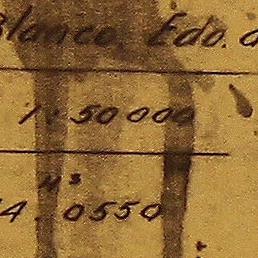 Blanco, Edo. d
1:50000
M³
4.0550